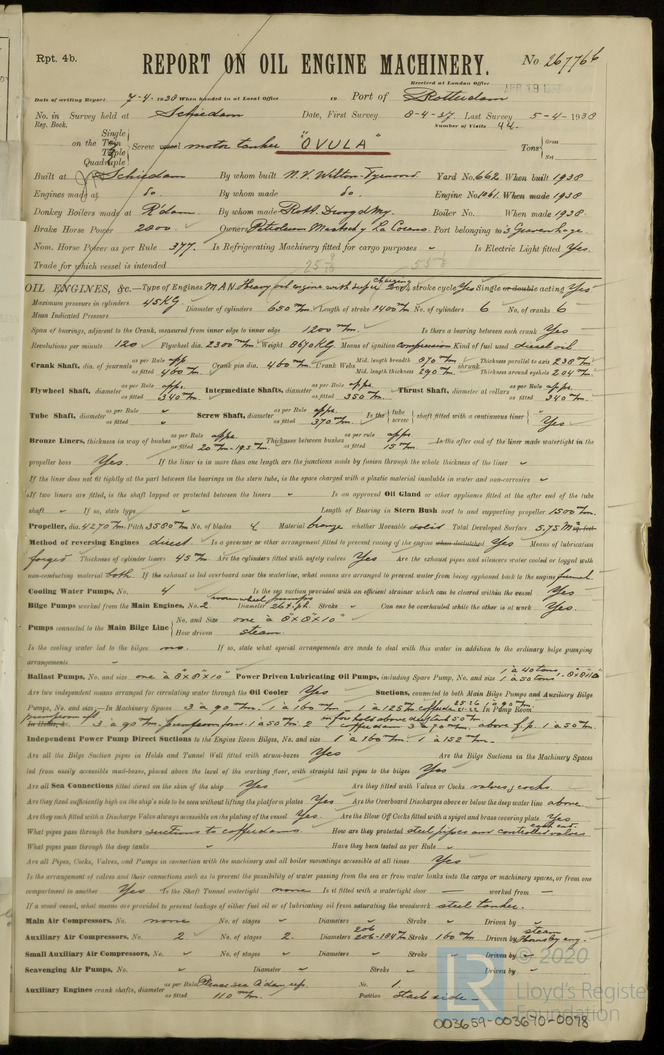 Rpt. 4b.
REPORT ON OIL ENGINE MACHINERY.
No 267766
Received at London Office
APR 19
Date of writing Report 7-4-1938 When handed in at Local Office 19 Port of Rotterdam
No. in Survey held at Schiedam Date, First Survey 8-4-37. Last Survey 5-4-1938
Reg. Book. Number of Visits 44.
on the Single Twin Triple Quadruple Screw vessel motor tanker "OVULA" Tons Gross Net
Built at Schiedam By whom built N.V. Wilton-Fijenoord Yard No. 662 When built 1938
Engines made at do. By whom made do. Engine No. 1061. When made 1938
Donkey Boilers made at R'dam By whom made Rott. Droogd My. Boiler No. When made 1938
Brake Horse Power 2800 Owners Petroleum Maatschy La Corona Port belonging to 's Gravenhage.
Nom. Horse Power as per Rule 377. Is Refrigerating Machinery fitted for cargo purposes Is Electric Light fitted Yes.
Trade for which vessel is intended
OIL ENGINES, &c.—Type of Engines M.A.N. Heavy oil engine with super charging 2 or 4 stroke cycle Yes Single or double acting Yes
Maximum pressure in cylinders 45 KG. Diameter of cylinders 650 m/m. Length of stroke 1400 m/m. No. of cylinders 6 No. of cranks 6
Mean Indicated Pressure
Span of bearings, adjacent to the Crank, measured from inner edge to inner edge 1200 m/m. Is there a bearing between each crank Yes
Revolutions per minute 120 Flywheel dia. 2300 m/m. Weight 8670 KG. Means of ignition compression Kind of fuel used diesel oil
Crank Shaft, dia. of journals as per Rule app. as fitted 460 m/m. Crank pin dia. 460 m/m. Crank Webs Mid. length breadth 870 m/m. Mid. length thickness 290 m/m. shrunk Thickness parallel to axis 230 m/m. Thickness around eyehole 204 m/m.
Flywheel Shaft, diameter as per Rule app. as fitted 340 m/m. Intermediate Shafts, diameter as per Rule app. as fitted 350 m/m. Thrust Shaft, diameter at collars as per Rule app. as fitted 340 m/m.
Tube Shaft, diameter as per Rule as fitted Screw Shaft, diameter as per Rule app. as fitted 370 m/m. Is the tube screw shaft fitted with a continuous liner Yes
Bronze Liners, thickness in way of bushes as per Rule app. as fitted 20 m/m-19.5 m/m. Thickness between bushes as per rule app. as fitted 15 m/m. Is the after end of the liner made watertight in the
propeller boss Yes. If the liner is in more than one length are the junctions made by fusion through the whole thickness of the liner
If the liner does not fit tightly at the part between the bearings in the stern tube, is the space charged with a plastic material insoluble in water and non-corrosive
If two liners are fitted, is the shaft lapped or protected between the liners Is an approved Oil Gland or other appliance fitted at the after end of the tube
shaft If so, state type Length of Bearing in Stern Bush next to and supporting propeller 1500 m/m.
Propeller, dia. 4270 m/m. Pitch 3580 m/m No. of blades 4 Material bronze whether Moveable solid Total Developed Surface 5,75 M² sq. feet
Method of reversing Engines direct. Is a governor or other arrangement fitted to prevent racing of the engine when declutched Yes Means of lubrication
forced Thickness of cylinder liners 45 m/m Are the cylinders fitted with safety valves Yes Are the exhaust pipes and silencers water cooled or lagged with
non-conducting material both. If the exhaust is led overboard near the waterline, what means are arranged to prevent water from being syphoned back to the engine funnel.
Cooling Water Pumps, No. 4 Is the sea suction provided with an efficient strainer which can be cleared within the vessel Yes
Bilge Pumps worked from the Main Engines, No. 2 Diameter Stroke Can one be overhauled while the other is at work Yes.
Pumps connected to the Main Bilge Line No. and Size one à 8"x8"x10" How driven steam
Is the cooling water led to the bilges no. If so, state what special arrangements are made to deal with this water in addition to the ordinary bilge pumping
arrangements
Ballast Pumps, No. and size one à 8"x8"x10" Power Driven Lubricating Oil Pumps, including Spare Pump, No. and size 1 à 40 tons. 1 à 50 tons.
Are two independent means arranged for circulating water through the Oil Cooler Yes Suctions, connected to both Main Bilge Pumps and Auxiliary Bilge
Pumps, No. and size:—In Machinery Spaces 3 à 90 m/m. 1 à 160 m/m - 1 à 125 m/m In Pump Room
Independent Power Pump Direct Suctions to the Engine Room Bilges, No. and size 1 à 160 m/m. 1 à 152 m/m.
Are all the Bilge Suction pipes in Holds and Tunnel Well fitted with strum-boxes Yes Are the Bilge Suctions in the Machinery Spaces
led from easily accessible mud-boxes, placed above the level of the working floor, with straight tail pipes to the bilges Yes
Are all Sea Connections fitted direct on the skin of the ship Yes Are they fitted with Valves or Cocks valves & cocks.
Are they fixed sufficiently high on the ship's side to be seen without lifting the platform plates Yes Are the Overboard Discharges above or below the deep water line above
Are they each fitted with a Discharge Valve always accessible on the plating of the vessel Yes Are the Blow Off Cocks fitted with a spigot and brass covering plate Yes
What pipes pass through the bunkers suctions to cofferdams How are they protected steel pipes and controlled valves each end
What pipes pass through the deep tanks Have they been tested as per Rule
Are all Pipes, Cocks, Valves, and Pumps in connection with the machinery and all boiler mountings accessible at all times Yes
Is the arrangement of valves and their connections such as to prevent the possibility of water passing from the sea or from water tanks into the cargo or machinery spaces, or from one
compartment to another Yes Is the Shaft Tunnel watertight none Is it fitted with a watertight door — worked from —
If a wood vessel, what means are provided to prevent leakage of either fuel oil or of lubricating oil from saturating the woodwork steel tanker.
Main Air Compressors, No. none No. of stages Diameters Stroke Driven by
Auxiliary Air Compressors, No. 2 No. of stages 2 Diameters 206 206-184 m/m Stroke 160 m/m Driven by steam
Small Auxiliary Air Compressors, No. No. of stages Diameters Stroke Driven by
Scavenging Air Pumps, No. Diameter Stroke Driven by
Auxiliary Engines crank shafts, diameter as per Rule as fitted 110 m/m. No. 1. Position starb side
© 2020
LR
Lloyd's Register
Foundation
003659-003670-0098